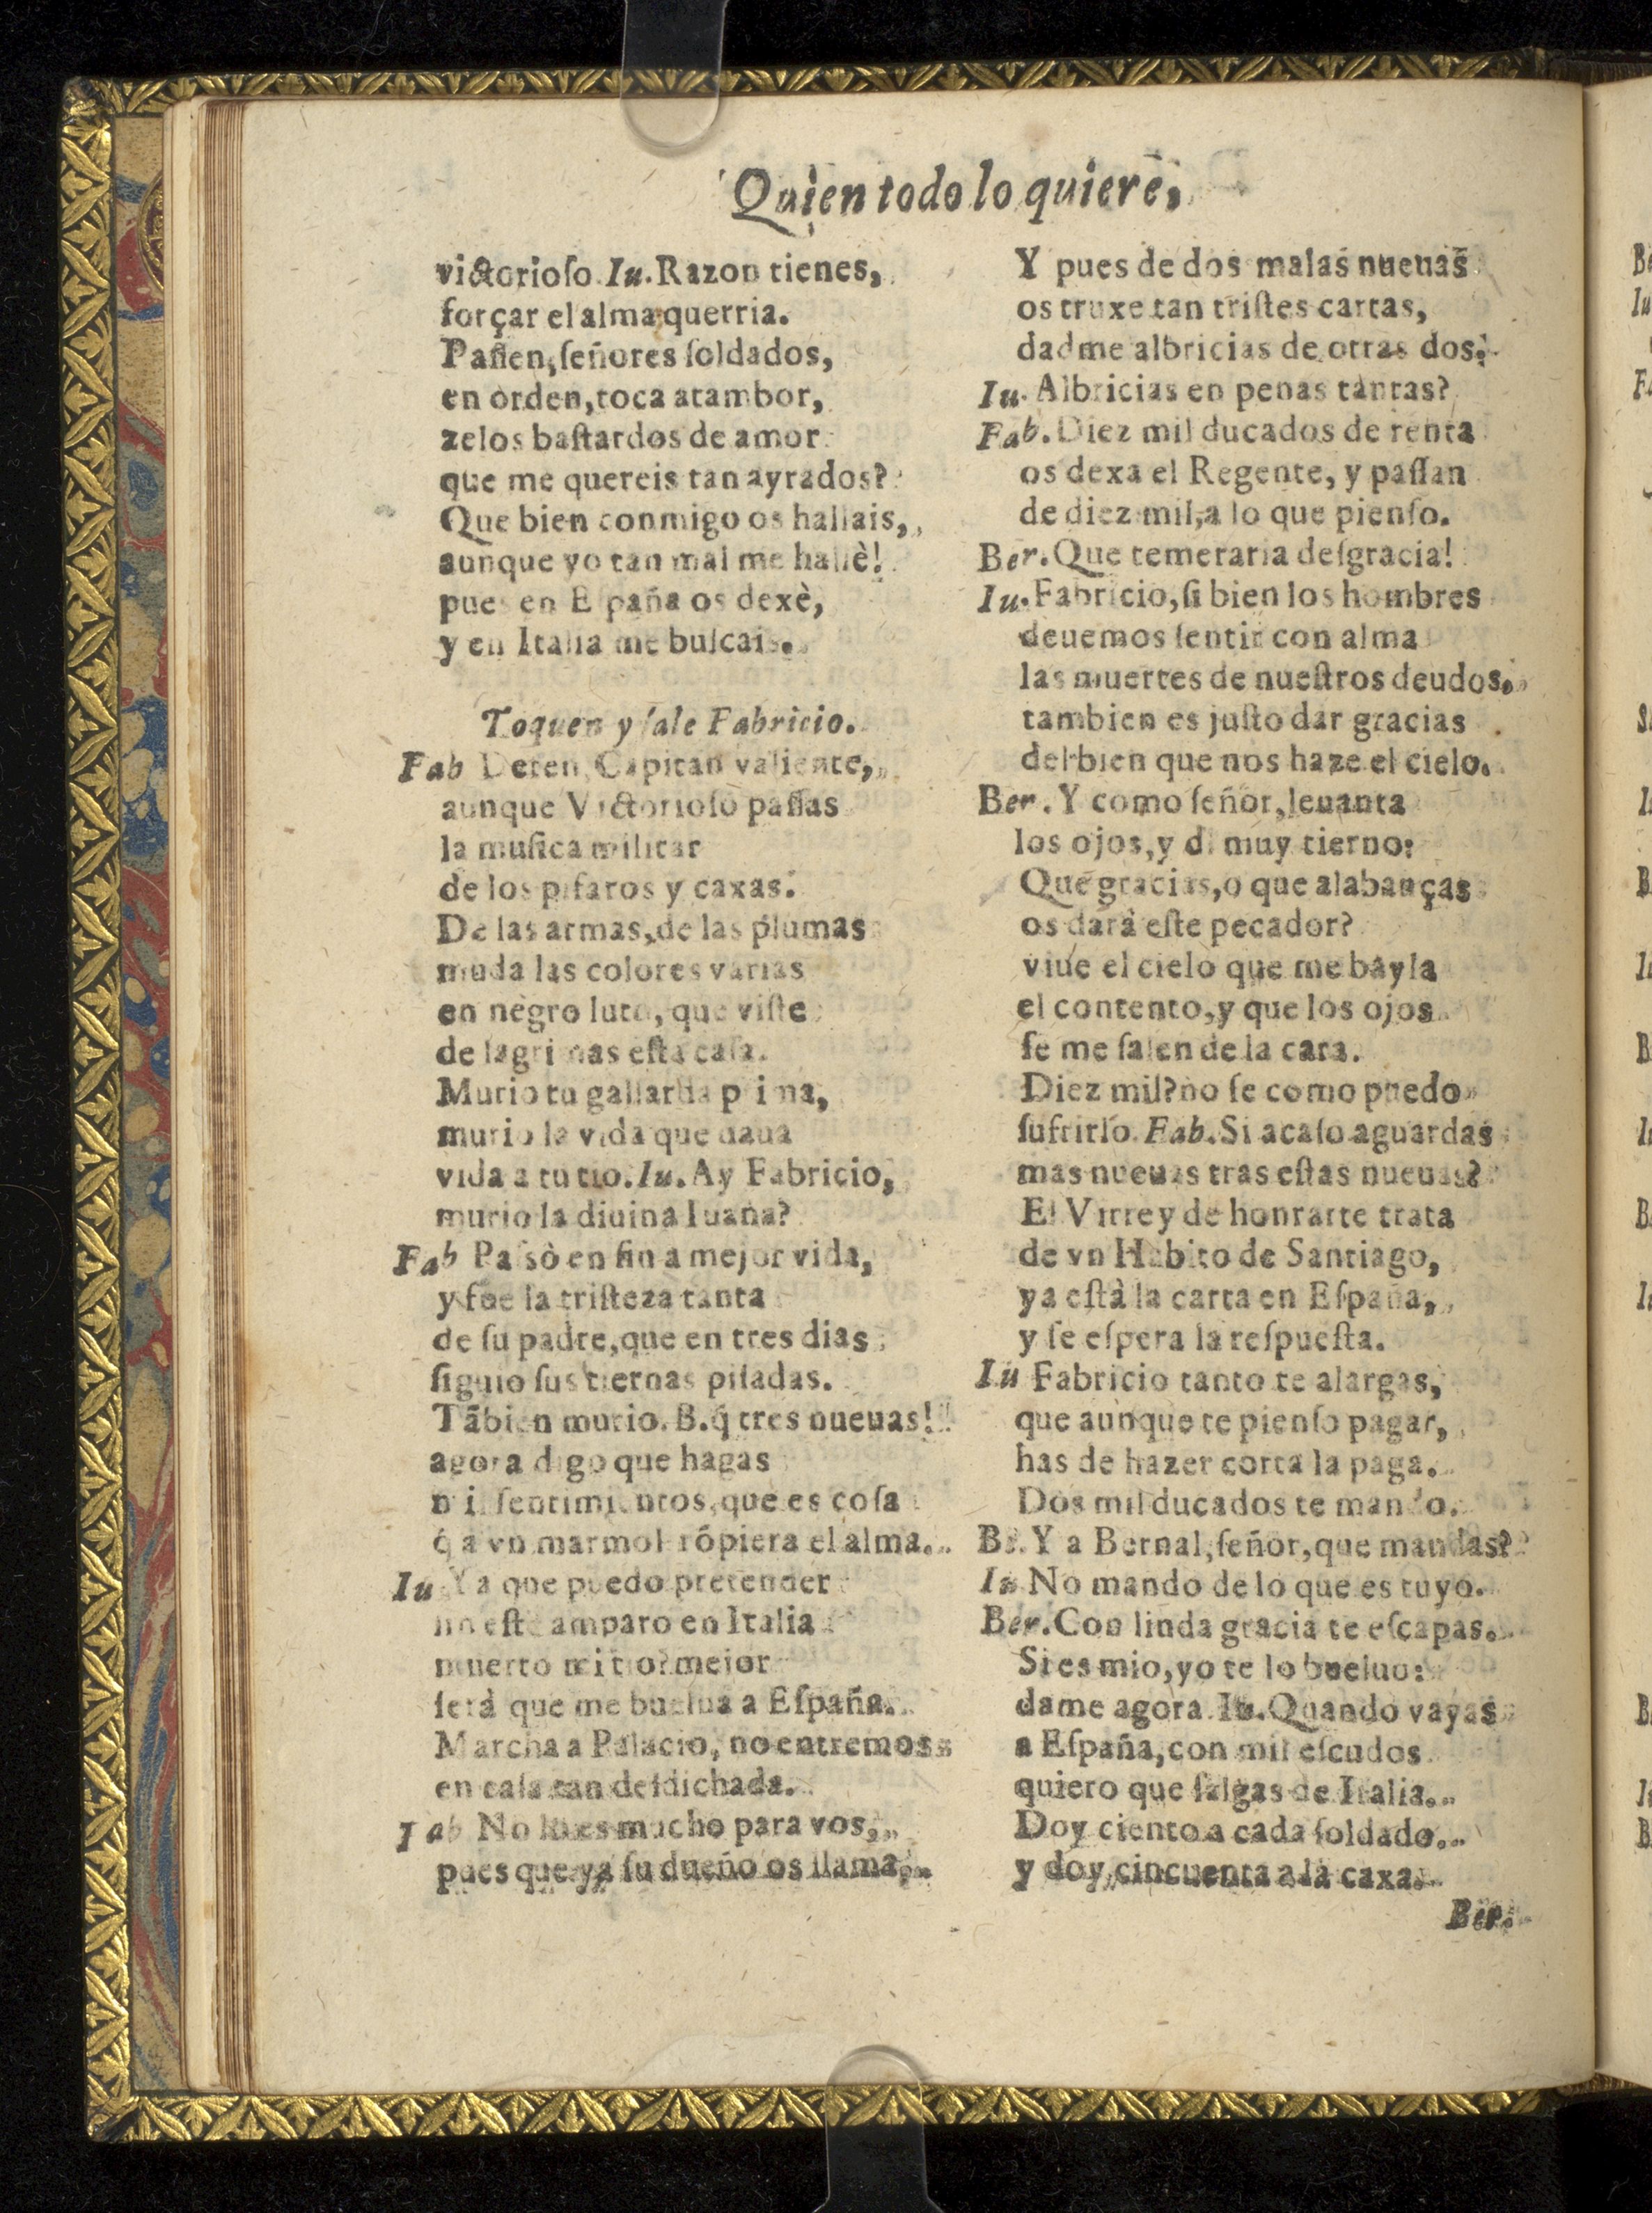 Quien todo lo quiere,
victorioſo. Iu. Razon tienes,
forçar el alma querria.
Paſſen, ſeñores ſoldados,
en orden, toca atambor,
zelos baſtardos de amor
que me quereis tan ayrados?
Que bien conmigo os hallais,
aunque yo tan mal me hallè!
pues en Eſpaña os dexè,
y en Italia me buſcais.
Toquen y ſale Fabricio.
Fab Deten, Capitan valiente,
aunque Victorioſo paſſas
la muſica militar
de los pifaros y caxas.
De las armas, de las plumas
muda las colores varias
en negro luto, que viſte
de lagrimas eſta caſa.
Murio tu gallarda prima,
murio la vida que daua
vida a tu tio. Iu. Ay Fabricio,
murio la diuina Iuana?
Fab Paſsò en fin a mejor vida,
y fue la triſteza tanta
de ſu padre, que en tres dias
ſiguio ſus tiernas piſadas.
Tãbien murio. B. q̃ tres nueuas!
agora digo que hagas
mil ſentimientos, que es coſa
q̃ a vn marmol rõpiera el alma.
Iu Ya que puedo pretender
ſin eſte amparo en Italia
muerto mi tio? mejor
ſerà que me buelua a Eſpaña.
Marcha a Palacio, no entremos
en caſa tan deſdichada.
Fab No lo es mucho para vos,
pues que ya ſu dueño os llama,
Y pues de dos malas nueuas
os truxe tan triſtes cartas,
dadme albricias de otras dos.
Iu. Albricias en penas tantas?
Fab. Diez mil ducados de renta
os dexa el Regente, y paſſan
de diez mil, a lo que pienſo.
Ber. Que temeraria deſgracia!
Iu. Fabricio, ſi bien los hombres
deuemos ſentir con alma
las muertes de nueſtros deudos,
tambien es juſto dar gracias
del bien que nos haze el cielo.
Ber. Y como ſeñor, leuanta
los ojos, y di muy tierno:
Que gracias, o que alabanças
os darà eſte pecador?
viue el cielo que me bayla
el contento, y que los ojos
ſe me ſalen de la cara.
Diez mil? no ſe como puedo
ſufrirlo. Fab. Si acaſo aguardas
mas nueuas tras eſtas nueuas?
El Virrey de honrarte trata
de vn Habito de Santiago,
ya eſtà la carta en Eſpaña,
y ſe eſpera la reſpueſta.
Iu Fabricio tanto te alargas,
que aunque te pienſo pagar,
has de hazer corta la paga.
Dos mil ducados te mando.
Be. Y a Bernal, ſeñor, que mandas?
Iu No mando de lo que es tuyo.
Ber. Con linda gracia te eſcapas.
Si es mio, yo te lo bueluo:
dame agora. Iu. Quando vayas
a Eſpaña, con mil eſcudos
quiero que ſalgas de Italia.
Doy ciento a cada ſoldado.
y doy cincuenta a la caxa.
Ber.